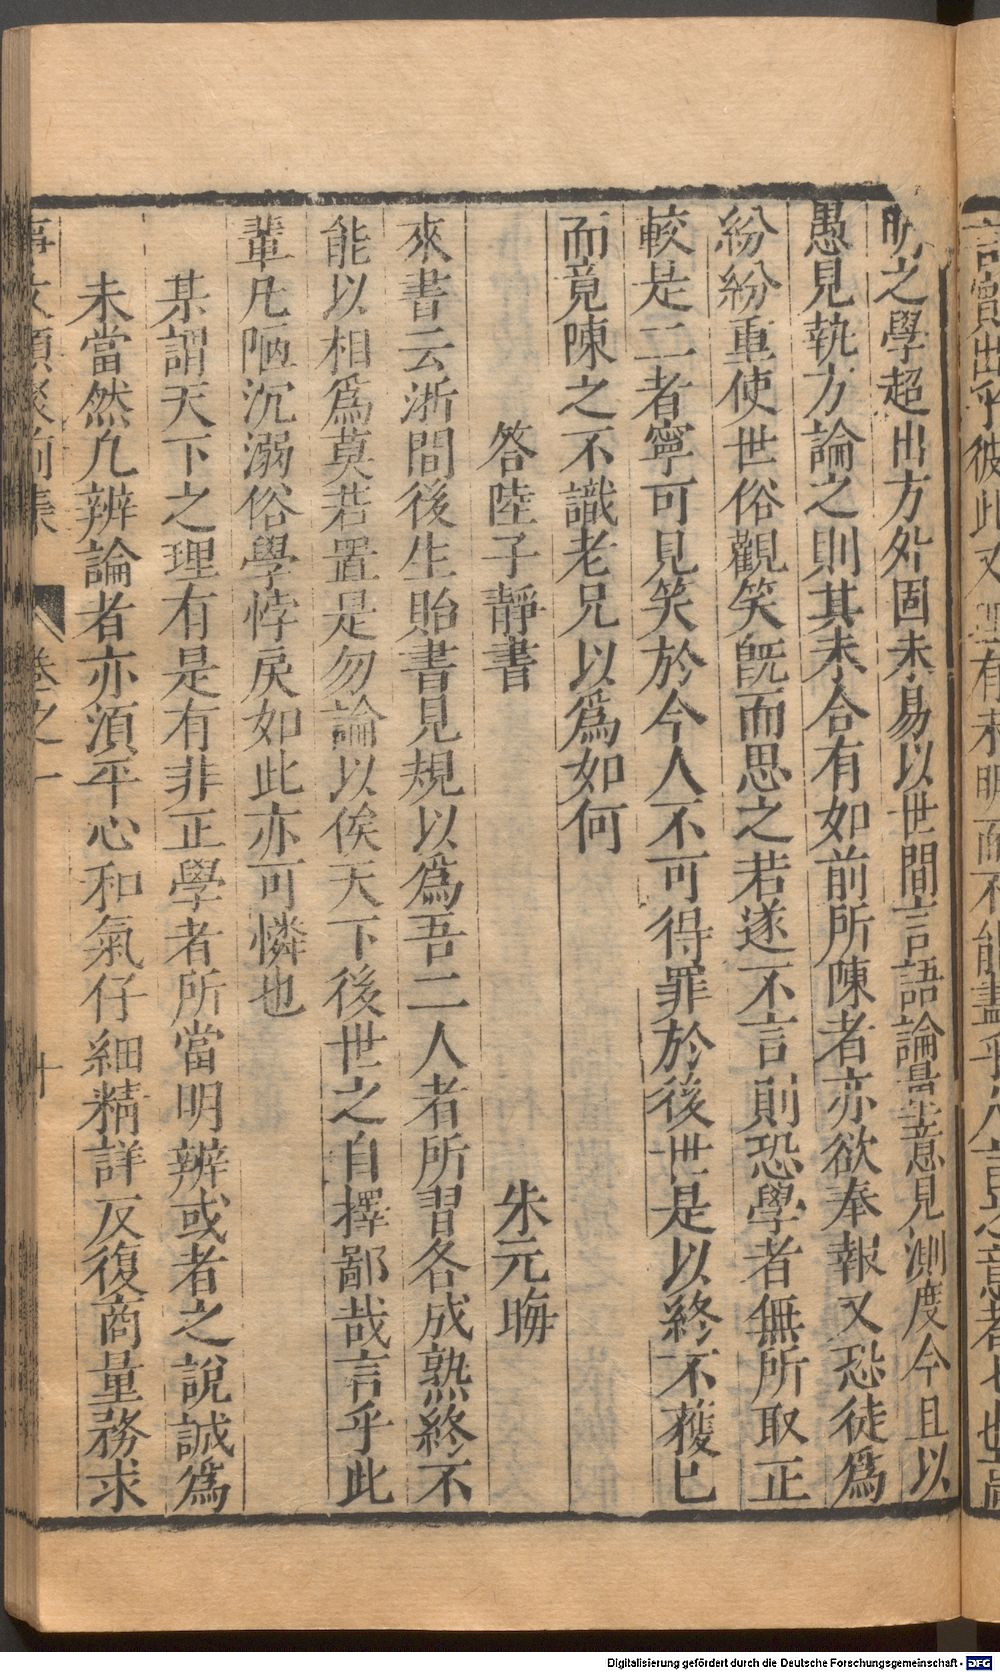 明之學超出方外固未易以世間言語論量意見測度今且以
愚見執方論之則其未合有如前所陳者亦欲奉報又恐徒為
紛紛重使世俗觀笑旣而思之若遂不言則恐學者無所取正
較是二者寧可見笑於今人不可得罪於後世是以終不獲已
而竟陳之不識老兄以為如何
答陸子靜書 朱元晦
來書云浙間後生貽書見規以為吾二人者所習各成熟終不
能以相為莫若置是勿論以俟天下後世之自擇鄙哉言乎此
輩凡陋沉溺俗學悖戾如此亦可憐也
某謂天下之理有是有非正學者所當明辨或者之說誠為
未當然凡辨論者亦須平心和氣仔細精詳反復商量務求
事文類聚前集 卷之一 十
Digitalisierung gefördert durch die Deutsche Forschungsgemeinschaft - DFG